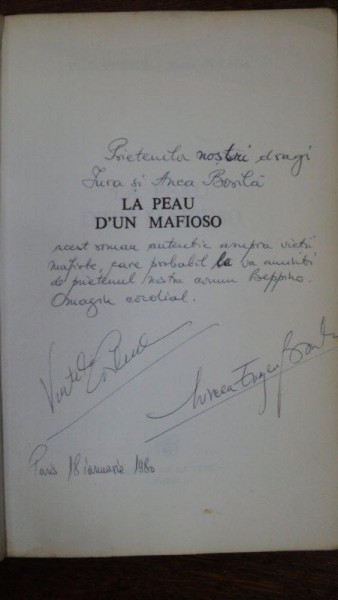 Prietenilor noștri dragi
Jura și Anca Bosilă
LA PEAU
D'UN MAFIOSO
acest roman autentic asupra vieții
mafiote, care probabil le va aminti
de prietenul nostru comun Beppino.
Omagiu cordial.
Mircea Eugen
Paris 18 ianuarie 1980